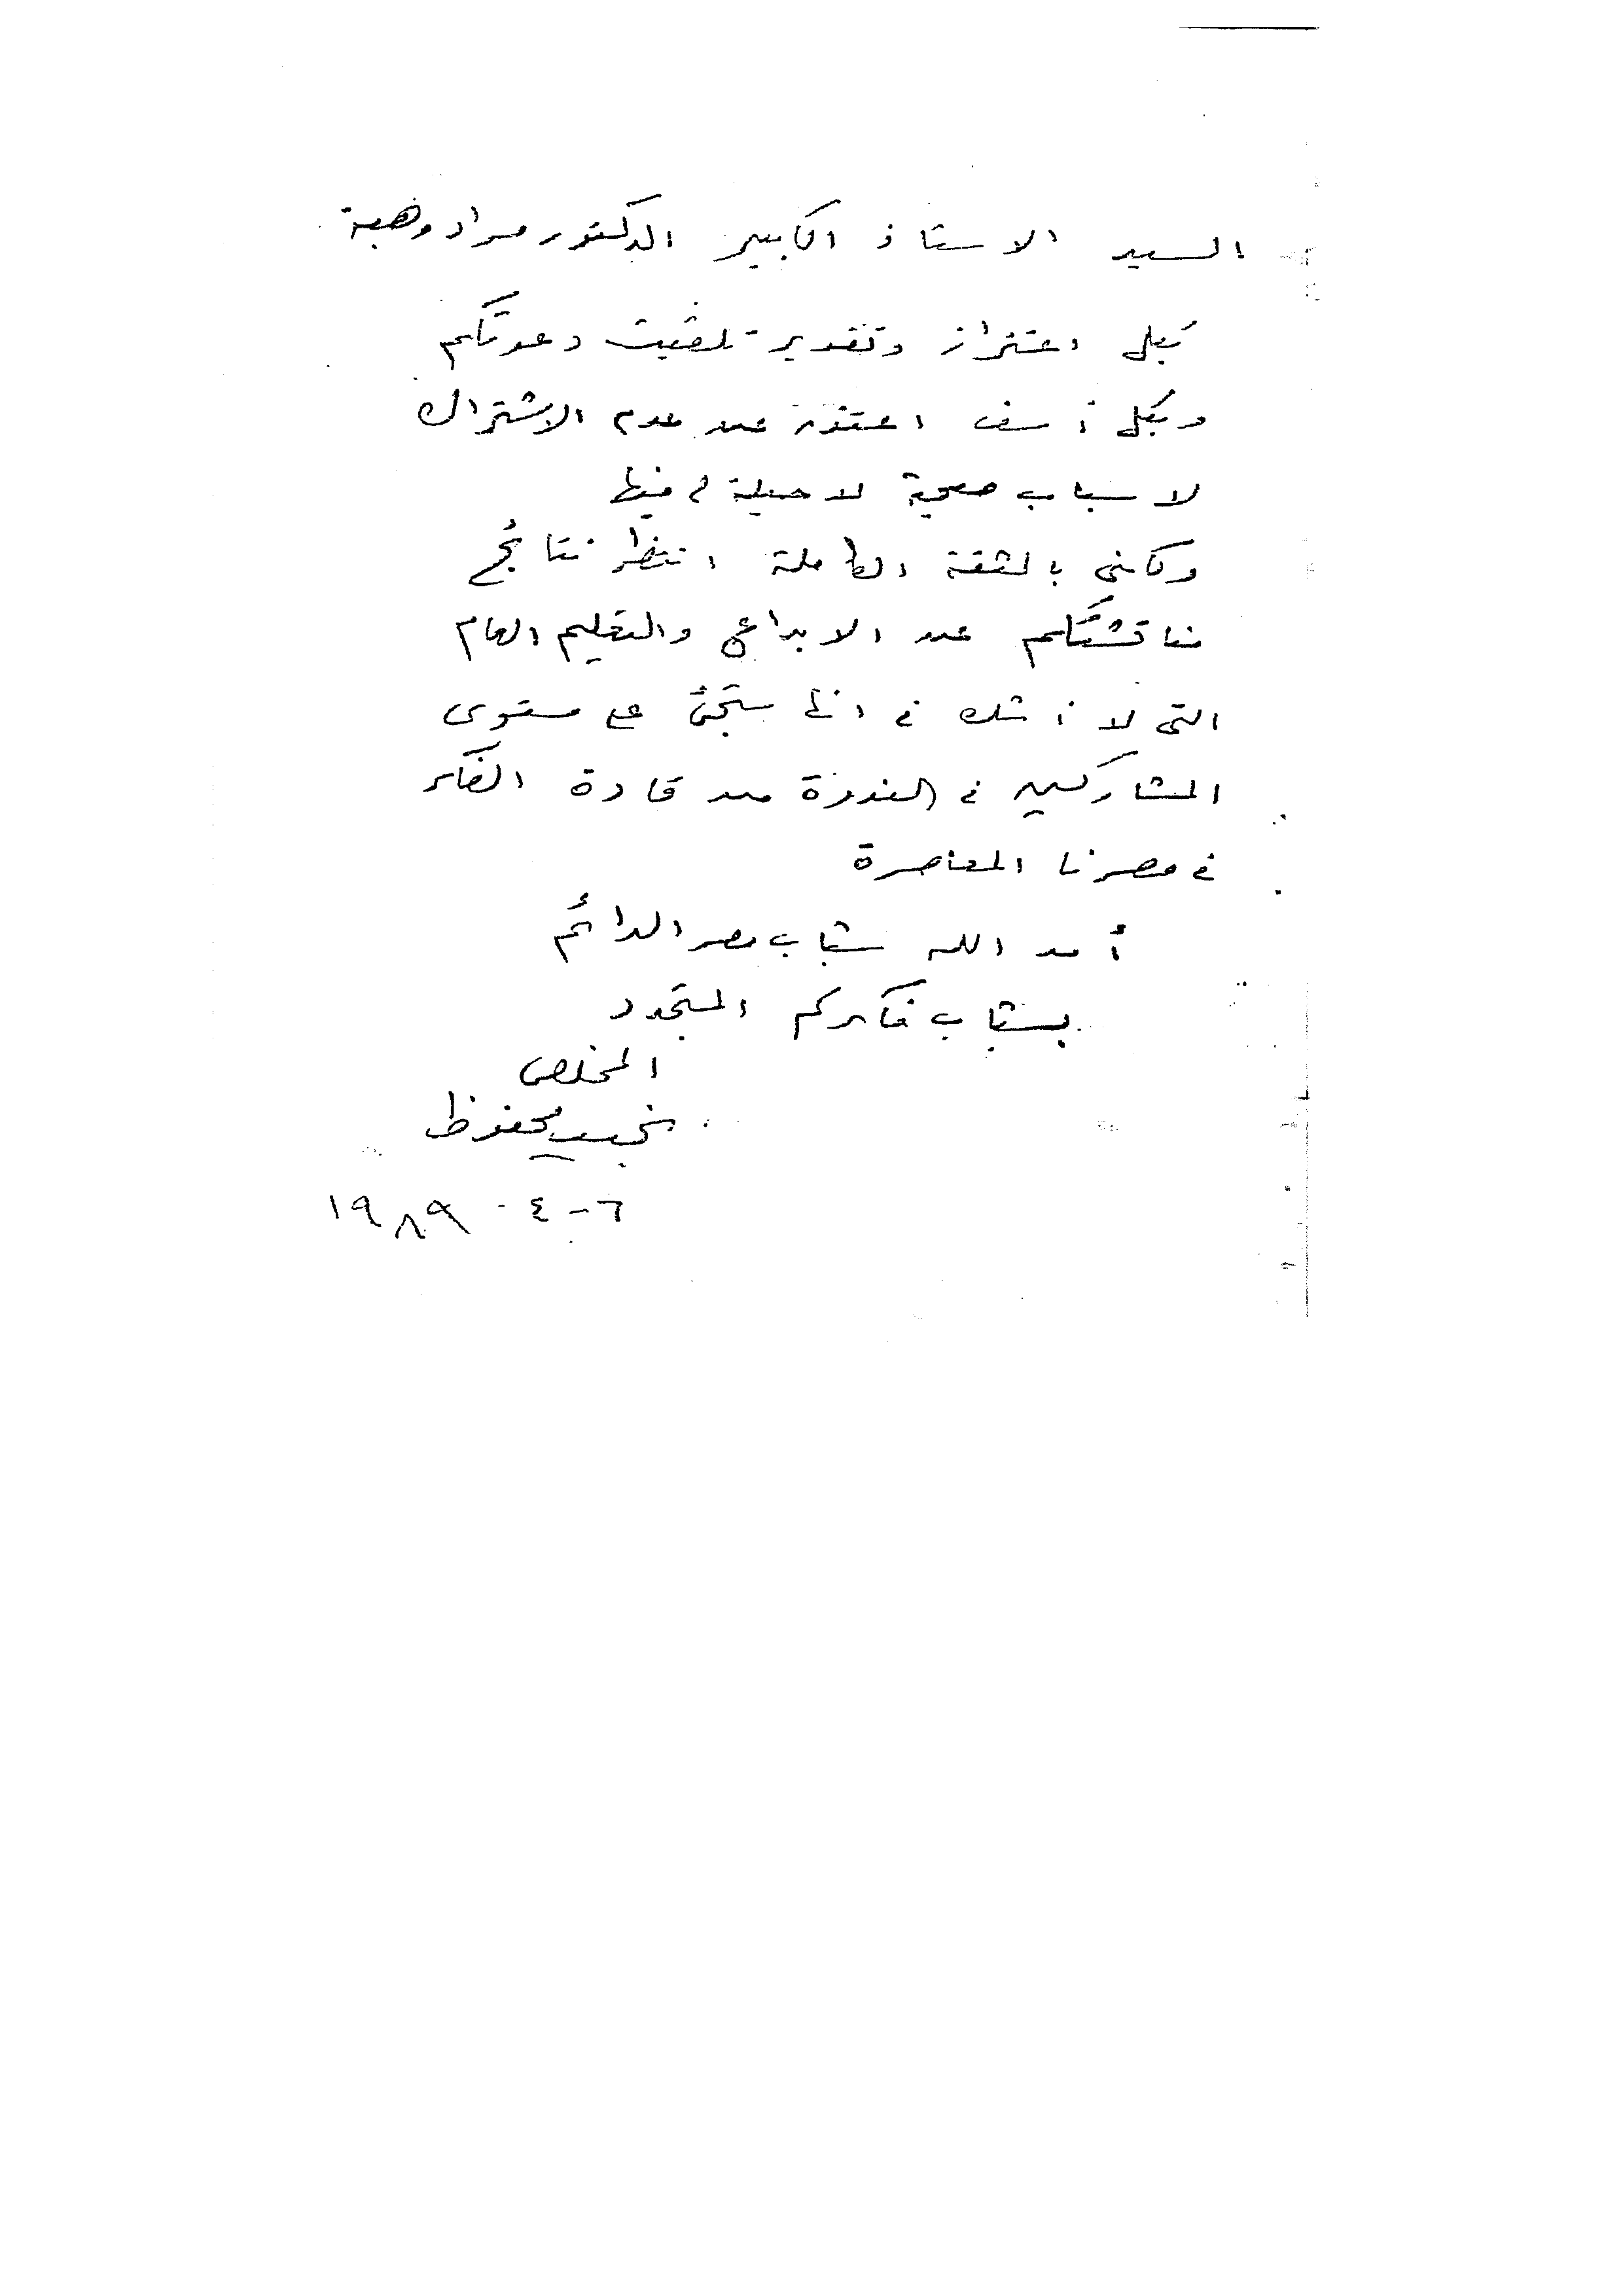 السيد الاستاذ الكبير الدكتور مراد وهبة
بكل اعتزاز وتقدير تلقيت دعوتكم
وبكل أسف اعتذر عن عدم الاشتراك
لاسباب صحية لا حيلة لى فيها
ولكنى بالثقة الكاملة انتظر نتائج
مناقشتكم عن الابداع والتعليم العام
التى لا أشك فى انها ستجئ على مستوى
المشاركين فى الندوة من قادة الفكر
فى مصرنا المعاصرة
أمد الله شباب مصر الدائم
بشباب فكركم المتجدد
المخلص
نجيب محفوظ
٦-٤-١٩٨٩